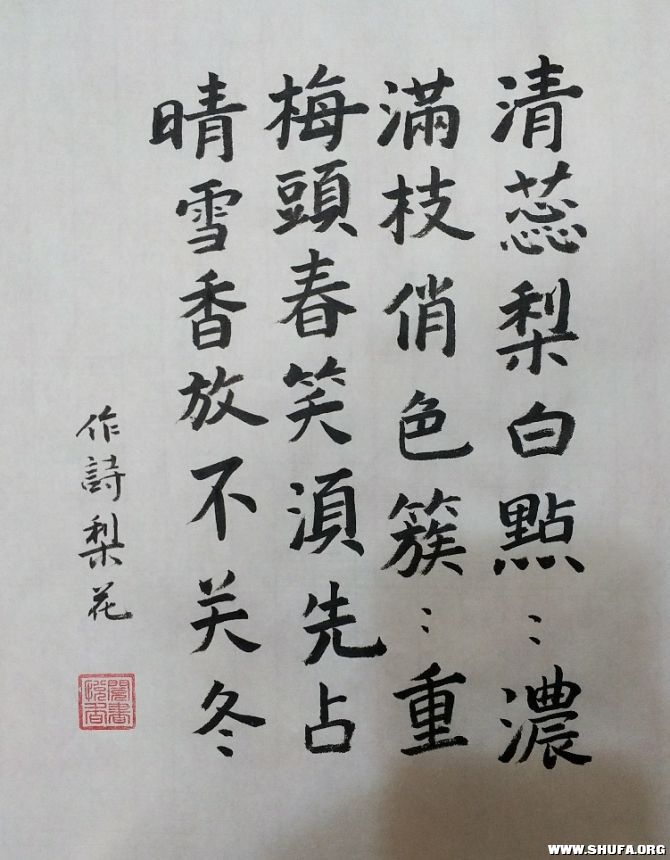 清蕊梨白點〻濃
滿枝俏色簇〻重
梅頭春笑湏先占
晴雪香放不关冬
作詩梨花
WWW.SHUFA.ORG